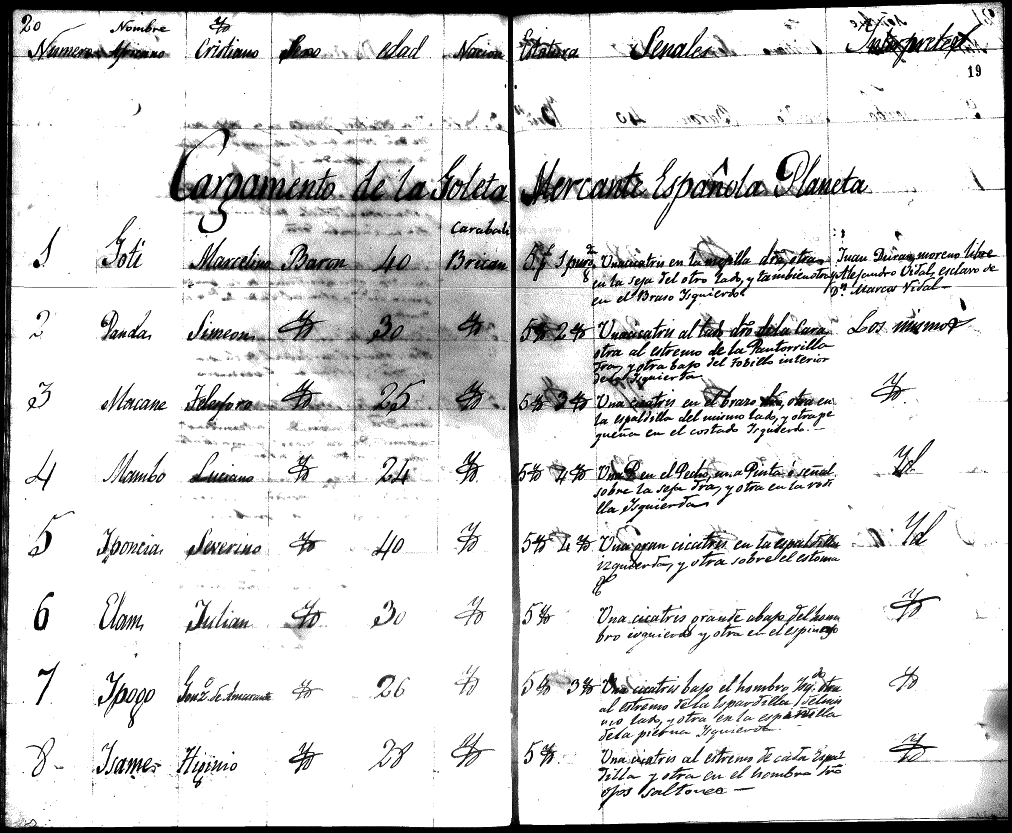 20
Numero Nombre Africano Yd Cristiano Sexo edad Nacion Estatura Señales Interpretes
19
Cargamento de la Goleta Mercante Española Planeta
1 Goti Marcelino Baron 40 Carabali Brican 5 1 Una cicatris en la megilla dra, otra
en la seja del otro lado, y tambien otra
en el Braso Izquierdo
Juan Duran, moreno libre
Alejandro Vidal, esclavo de
Dn. Marcos Vidal
2 Panda Simeon Yd 30 Yd 5 Yd 2 Yd Una cicatris al lado dro de la Cara
otra al estremo de la Pantorrilla
dra, y otra bajo del Tobillo interior
de la Izquierda
Los mismos
3 Macane Telesforo Yd 25 Yd 5 Yd 3 Yd Una cicatris en el brazo dro, otra en
la espaldilla del mismo lado, y otra pe
queña en el costado Izquierdo. Yd
4 Mambo Luciano Yd 24 Yd 5 Yd 4 Yd Una en el Pecho, una Pinta o señal
sobre la seja dra, y otra en la rodi
lla Izquierda Yd
5 Yponcia Severino Yd 40 Yd 5 Yd 4 Yd Una gran cicatris en la espaldilla
izquierda, y otra sobre el estoma
go Yd
6 Elam Julian Yd 30 Yd 5 Yd Una cicatris grande abajo del hom
bro izquierdo y otra en el espinazo Yd
7 Ypogo Gonz. de Amarante Yd 26 Yd 5 Yd 3 Yd Una cicatris bajo el hombro Izqdo. otra
al estremo de la Espardilla del mis
mo lado, y otra en la espinilla
de la pierna Izquierda Yd
8 Ysame Higinio Yd 28 Yd 5 Yd Una cicatris al estremo de cada Espal
dilla y otra en el hombro dro
ojos saltones Yd